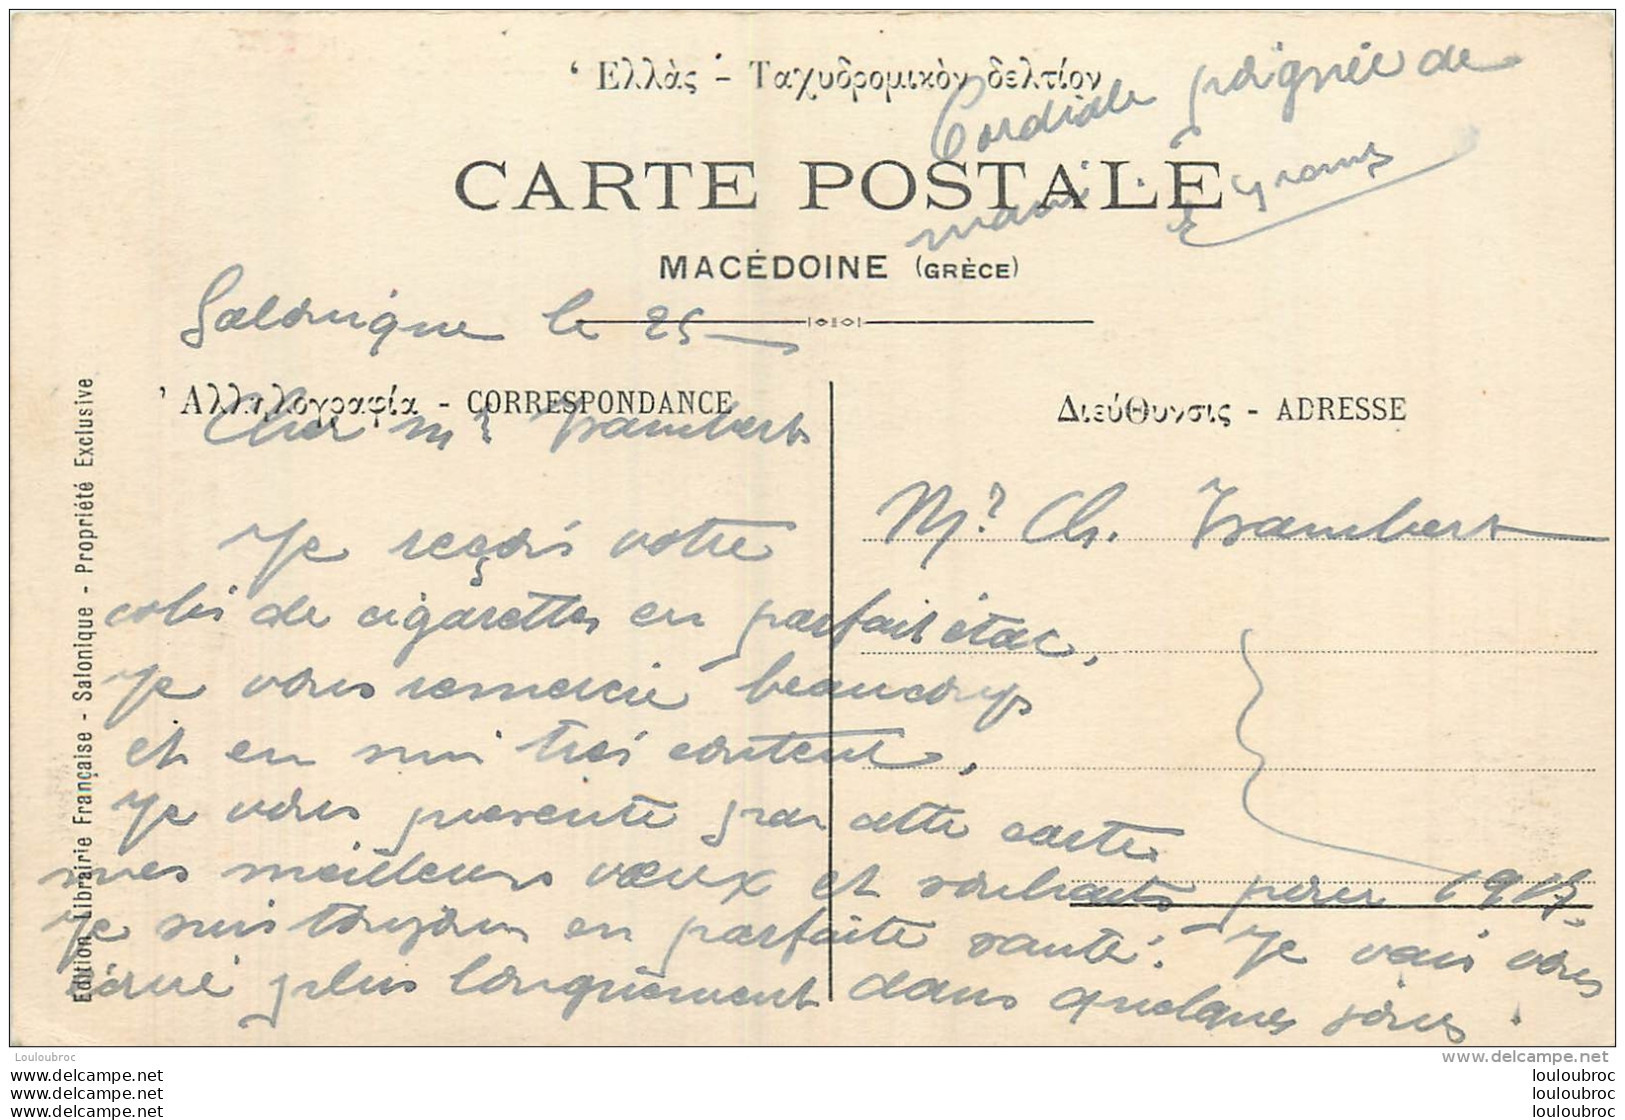 ‘Ελλὰς - Ταχυδρομικὸν δελτίον
Cordiale poignée de
main
CARTE POSTALE
MACÉDOINE (GRÈCE)
Salonique le 25
’Αλληλογραφία - CORRESPONDANCE
Διεύθυνσις - ADRESSE
Cher Mr Isambert
Mr Ch. Isambert
Je reçois votre
colis de cigarettes en parfait état,
Je vous remercie beaucoup
et en suis très content.
Je vous présente par cette carte
mes meilleurs vœux et souhaits pour 1917.
Je suis toujours en parfaite santé. Je vais vous
écrire plus longuement dans quelques jours.
Edition Librairie Française - Salonique - Propriété Exclusive
Louloubroc
www.delcampe.net
www.delcampe.net
louloubroc
www.delcampe.net
louloubroc
www.delcampe.net
louloubroc